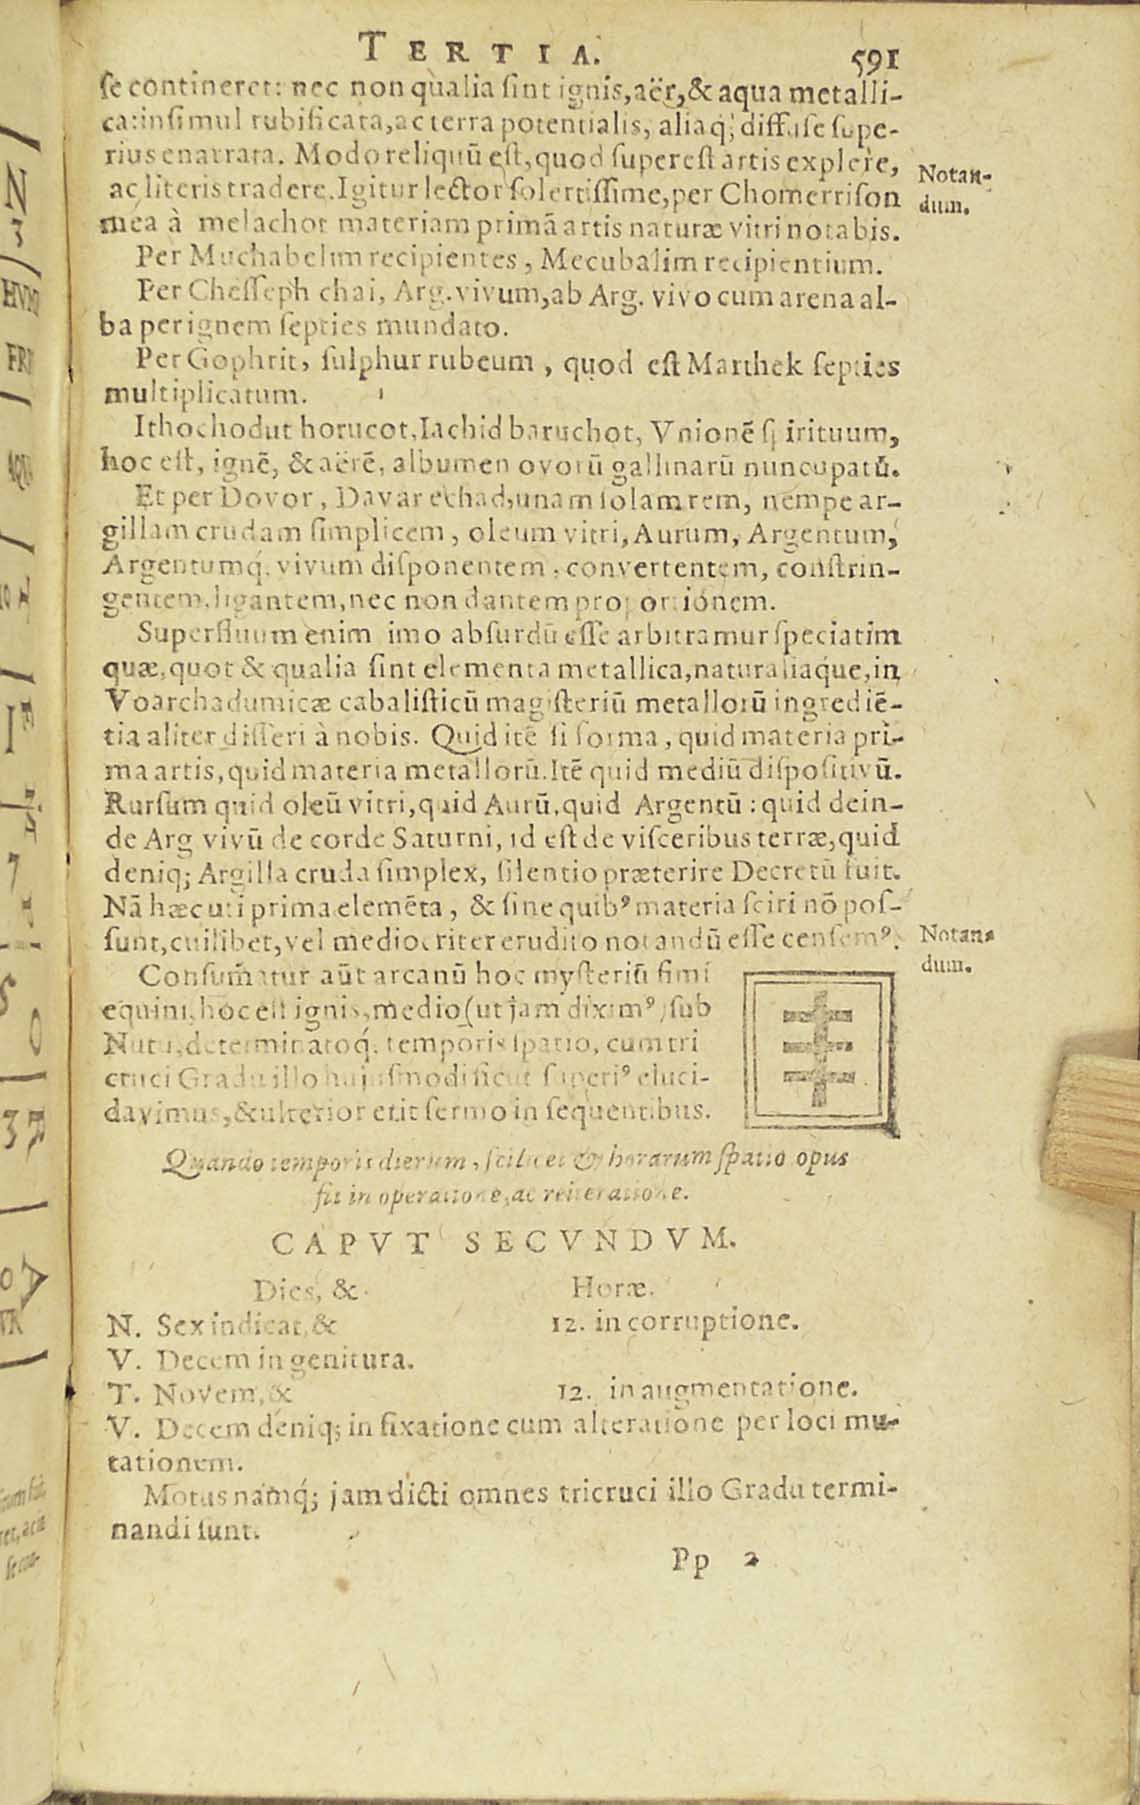 TERTIA. 591
se contineret: nec non qualia sint ignis, aër, & aqua metalli-
ca: insimul rubificata, ac terra potentialis, aliaq́; diffuse supe-
rius enarrata. Modo reliquū est, quod superest artis explere,
ac literis tradere. Igitur lector solertissime, per Chomerrison
mea à melachot materiam primā artis naturæ vitri notabis.
Notan-
dum.
Per Muchabelim recipientes, Mecubalim recipientium.
Per Chesseph chai, Arg. vivum, ab Arg. vivo cum arena al-
ba per ignem septies mundato.
Per Gophrit, sulphur rubeum, quod est Marthek septies
multiplicatum.
Ithochodut horucot, Iachid baruchot, Vnionē spirituum,
hoc est, ignē, & aërē, albumen ovorū gallinarū nuncupatū.
Et per Dovor, Davar echad, unam solam rem, nempe ar-
gillam crudam simplicem, oleum vitri, Aurum, Argentum,
Argentumq́; vivum disponentem, convertentem, constrin-
gentem, ligantem, nec non dantem proportionem.
Superfluum enim imo absurdū esse arbitramur speciatim
quæ, quot & qualia sint elementa metallica, naturaliaque, in
Voarchadumicæ cabalisticū magisteriū metallorū ingrediē-
tia aliter disseri à nobis. Quid itē si forma, quid materia pri-
ma artis, quid materia metallorū. Itē quid mediū dispositivū.
Rursum quid oleū vitri, quid Aurū, quid Argentū: quid dein-
de Arg vivū de corde Saturni, id est de visceribus terræ, quid
deniq; Argilla cruda simplex, silentio præterire Decretū fuit.
Nā hæc uti prima elemēta, & sine quibꝰ materia sciri nō pos-
sunt, cuilibet, vel mediocriter erudito notandū esse censemꝰ.
Notan-
dum.
Consum̃atur aūt arcanū hoc mysteriū fimi
equini, hoc est ignis, medio (ut jam diximꝰ) sub
Nutu, determinatoq́; temporis spatio, cum tri
cruci Gradu illo hujusmodi sicut superiꝰ eluci-
davimus, & ulterior erit sermo in sequentibus.
Quando temporis dierum, scilicet & horarum spatio opus
sit in operatione, ac reiteratione.
CAPVT SECVNDVM.
Dies, & Horæ.
N. Sex indicat, & 12. in corruptione.
V. Decem in genitura.
T. Novem, & 12. in augmentatione.
V. Decem deniq; in fixatione cum alteratione per loci mu-
tationem.
Motus namq́; jam dicti omnes tricruci illo Gradu termi-
nandi sunt.
Pp 2